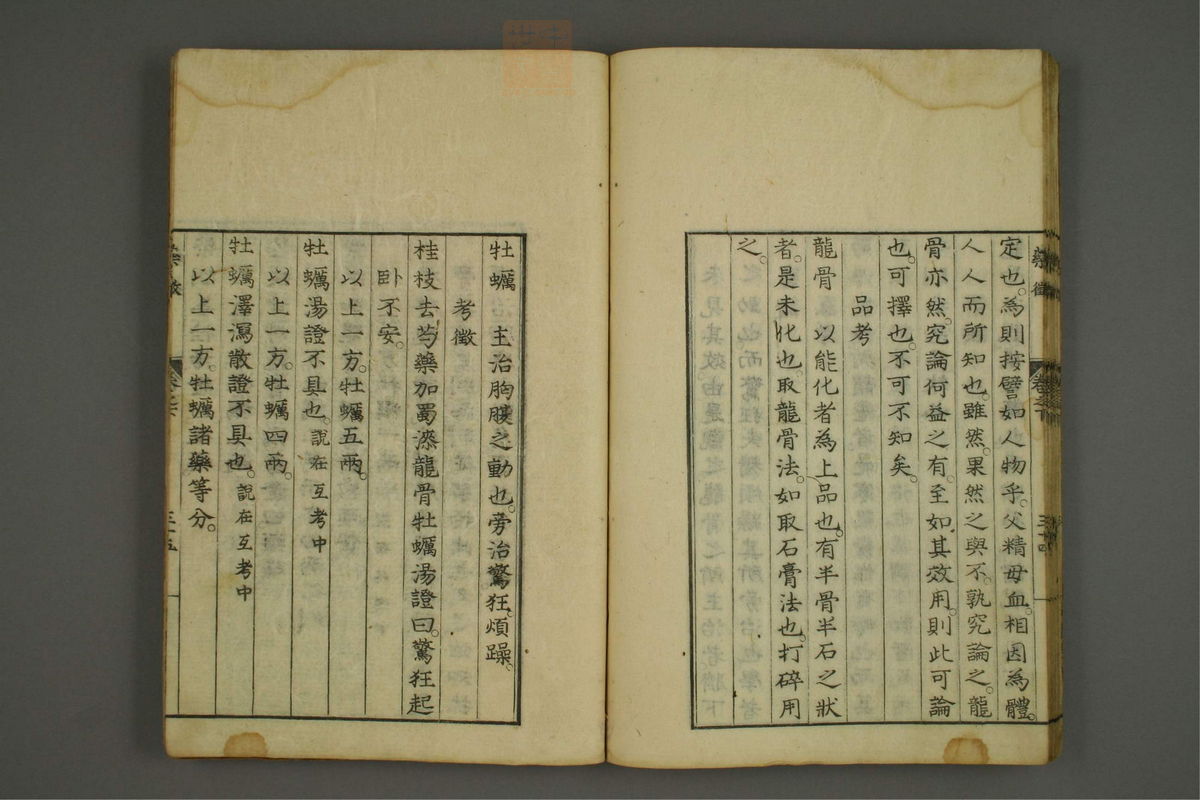 定也。為則按。譬如人物乎。父精母血。相因為體。
人人而所知也。雖然。果然之與不。孰究論之。龍
骨亦然。究論何益之有。至如其效用。則此可論
也。可擇也。不可不知矣。
品考
龍骨 以能化者為上品也。有半骨半石之狀
者。是未化也。取龍骨法。如取石膏法也。打碎用
之。
牡蠣 主治胸腹之動也。旁治驚狂。煩躁。
考徵
桂枝去芍藥加蜀漆龍骨牡蠣湯證曰。驚狂起
卧不安。
以上一方。牡蠣五兩。
牡蠣湯證不具也。說在互考中
以上一方。牡蠣四兩。
牡蠣澤瀉散證不具也。說在互考中
以上一方。牡蠣諸藥等分。